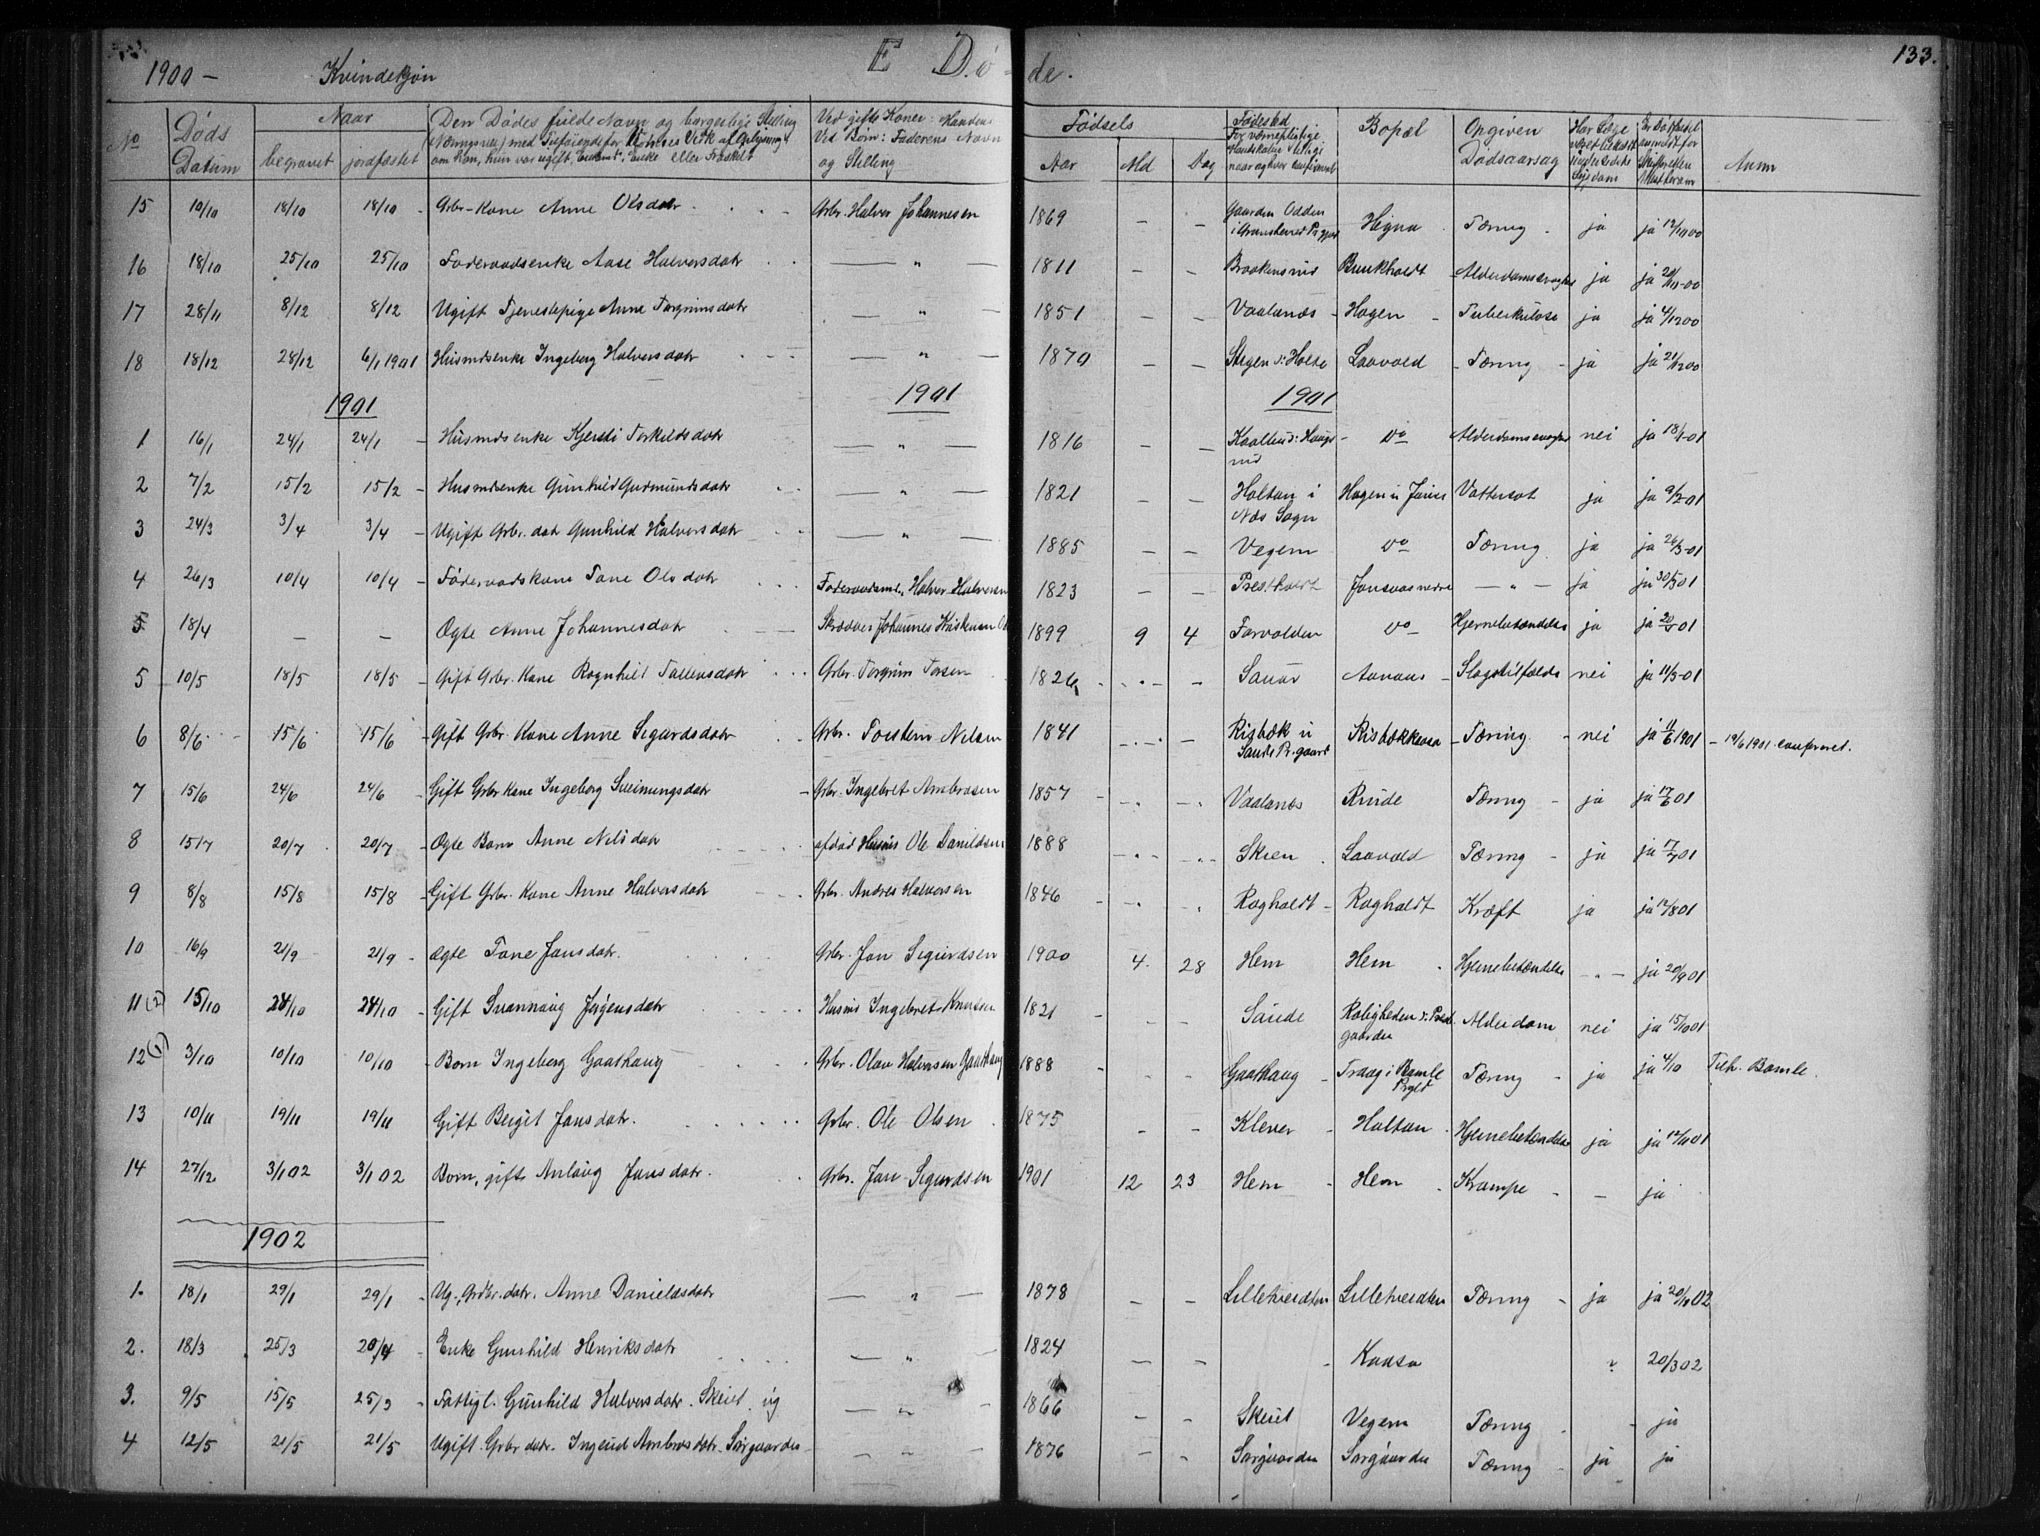 1900 – Kvindekjøn E Døde. 133.
No Døds Datum Naar begravet jordfæstet Den Dødes fulde Navn og borgerlige Stilling Ved gifte Koner: Mandens Ved Børn: Faderens Navn og Stilling Fødsels Aar Md Dag Fødested Bopæl Opgiven Dødsaarsag Anm
15 10/10 18/10 18/10 Grbr-Kone Anne Olsdatr Grbr. Halvor Johannesen 1869 – – Gaarden Odden i Gransherred Prgjeld Hegna Tæring ja ja 12/11 00
16 18/10 25/10 25/10 Føderaadsenke Aase Halvorsdatr – " – 1811 – – Braakensrud Bunkholdt Alderdomssvaghed ja ja
17 28/11 8/12 8/12 Ugift Tjenestepige Anne Torgrimsdatr – " – 1851 – – Vaalanæs Hagen Tuberkulose ja ja 4/12 00
18 18/12 28/12 6/1 1901 Husmdsenke Ingeborg Halvorsdatr – " – 1870 – – Stegen u: Holte Laavald Tæring ja ja 21/12 00
1901 1901 1901
1 16/1 24/1 24/1 Husmdsenke Kjersti Torkildsdatr – " – 1816 – – do Alderdomssvaghed nei ja 18/1-01
2 7/2 15/2 15/2 Husmdsenke Gunhild Gudmundsdatr – " – 1821 – – Holtan i Næs Sogn Hagen u Vattersot ja ja 9/2-01
3 24/3 3/4 3/4 Ugift Grbr. dat Gunhild Halvorsdatr – " – 1885 – – Vegem do Tæring ja ja 26/3-01
4 26/3 10/4 10/4 Føderaadskone Tone Olsdatr Føderaadsmd. Halvor Halvorsen 1823 – – Prestholdt Jonsaas nedre – " – ja ja 30/3 01
5 18/4 – – Ægte Anne Johannesdatr Skrædder Johannes 1899 9 4 Torvolden do Hjernebetændelse ja ja
5 10/5 18/5 18/5 Gift Grbr. Kone Ragnhild Tallevsdatr Grbr. Torgrim Torsen 1826 – – Sauar Aanaas Slagtilfælde nei ja 11/5-01
6 8/6 15/6 15/6 Gift Grbr. Kone Anne Sigurdsdatr Grbr. Torsten Nilsen 1841 – – Risbæk u Sande Pr.gaard Risbækkaasa Tæring nei ja 1901 – 19/6 1901 confereret.
7 15/6 24/6 24/6 Gift Grbr Kone Ingeborg Sveinungsdatr Grbr. Ingebret Ambrosen 1857 – – Vaalanæs Rnude Tæring ja ja 17/6 01
8 15/7 20/7 20/7 Ægte Barn Anne Nilsdatr afdød Husmd Ole Danielsen 1888 – – Skien Laavald Tæring ja ja 17/7 01
9 8/8 15/8 15/8 Gift Grbr. Kone Anne Halvorsdatr Grbr. Andres Halvorsen 1846 – – Rogholdt Rogholdt Kræft ja ja 12/8 01
10 16/9 21/9 21/9 Ægte Tone Jonsdatr. Grbr. Jon Sigurdsen 1900 4 28 Hem Hem Hjernebetændelse – ja 20/9 01
11 (2) 15/10 24/10 24/10 Gift Svannaug Jørgensdatr Husmd Ingebret Knutsen 1821 – – Saude Roligheden u: Prestegaarden Alderdom nei ja 15/10 01
12 (1) 3/10 10/10 10/10 Barn Ingeborg Gaashaug Grbr. Olav Halvorsen Gaashaug 1888 – – Gaashaug Traag i Bamle Prgld Tæring ja ja 4/10 Tilh. Bamle.
13 10/11 19/11 19/11 Gift Bergit Jonsdatr. Grbr. Ole Olsen 1875 – – Klever Holtan Hjernebetændelse ja ja 12/11 01
14 27/12 3/1 02 3/1 02 Barn, gift Anlaug Jonsdatr. Grbr. Jon Sigurdsen 1901 12 23 Hem Hem Krampe – ja
1902
1. 18/1 29/1 29/1 Ug. Grbr. datr. Anne Danielsdatr – " – 1878 – – Lilletveidten Lilletveidten Tæring ja ja 02
2. 18/3 25/3 20/4 Enke Gunhild Henriksdatr – " – 1824 – – Kaasa " 20/3 02
3. 9/5 15/5 25/9 Fattigl. Gunhild Halvorsdatr. Skeiet ug – " – 1866 – – Skeiet Vegem Tæring – ja
4 12/5 21/5 21/5 Ugift Grbr datr. Ingerid Ambrosdatr. Sørgaarden – " – 1876 – – Sørgaarden Sørgaarden Tæring ja ja